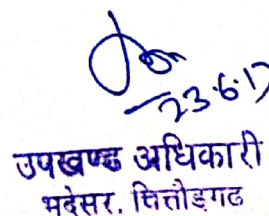 23.6.17
उपखण्ड अधिकारी
भदेसर, चित्तौड़गढ